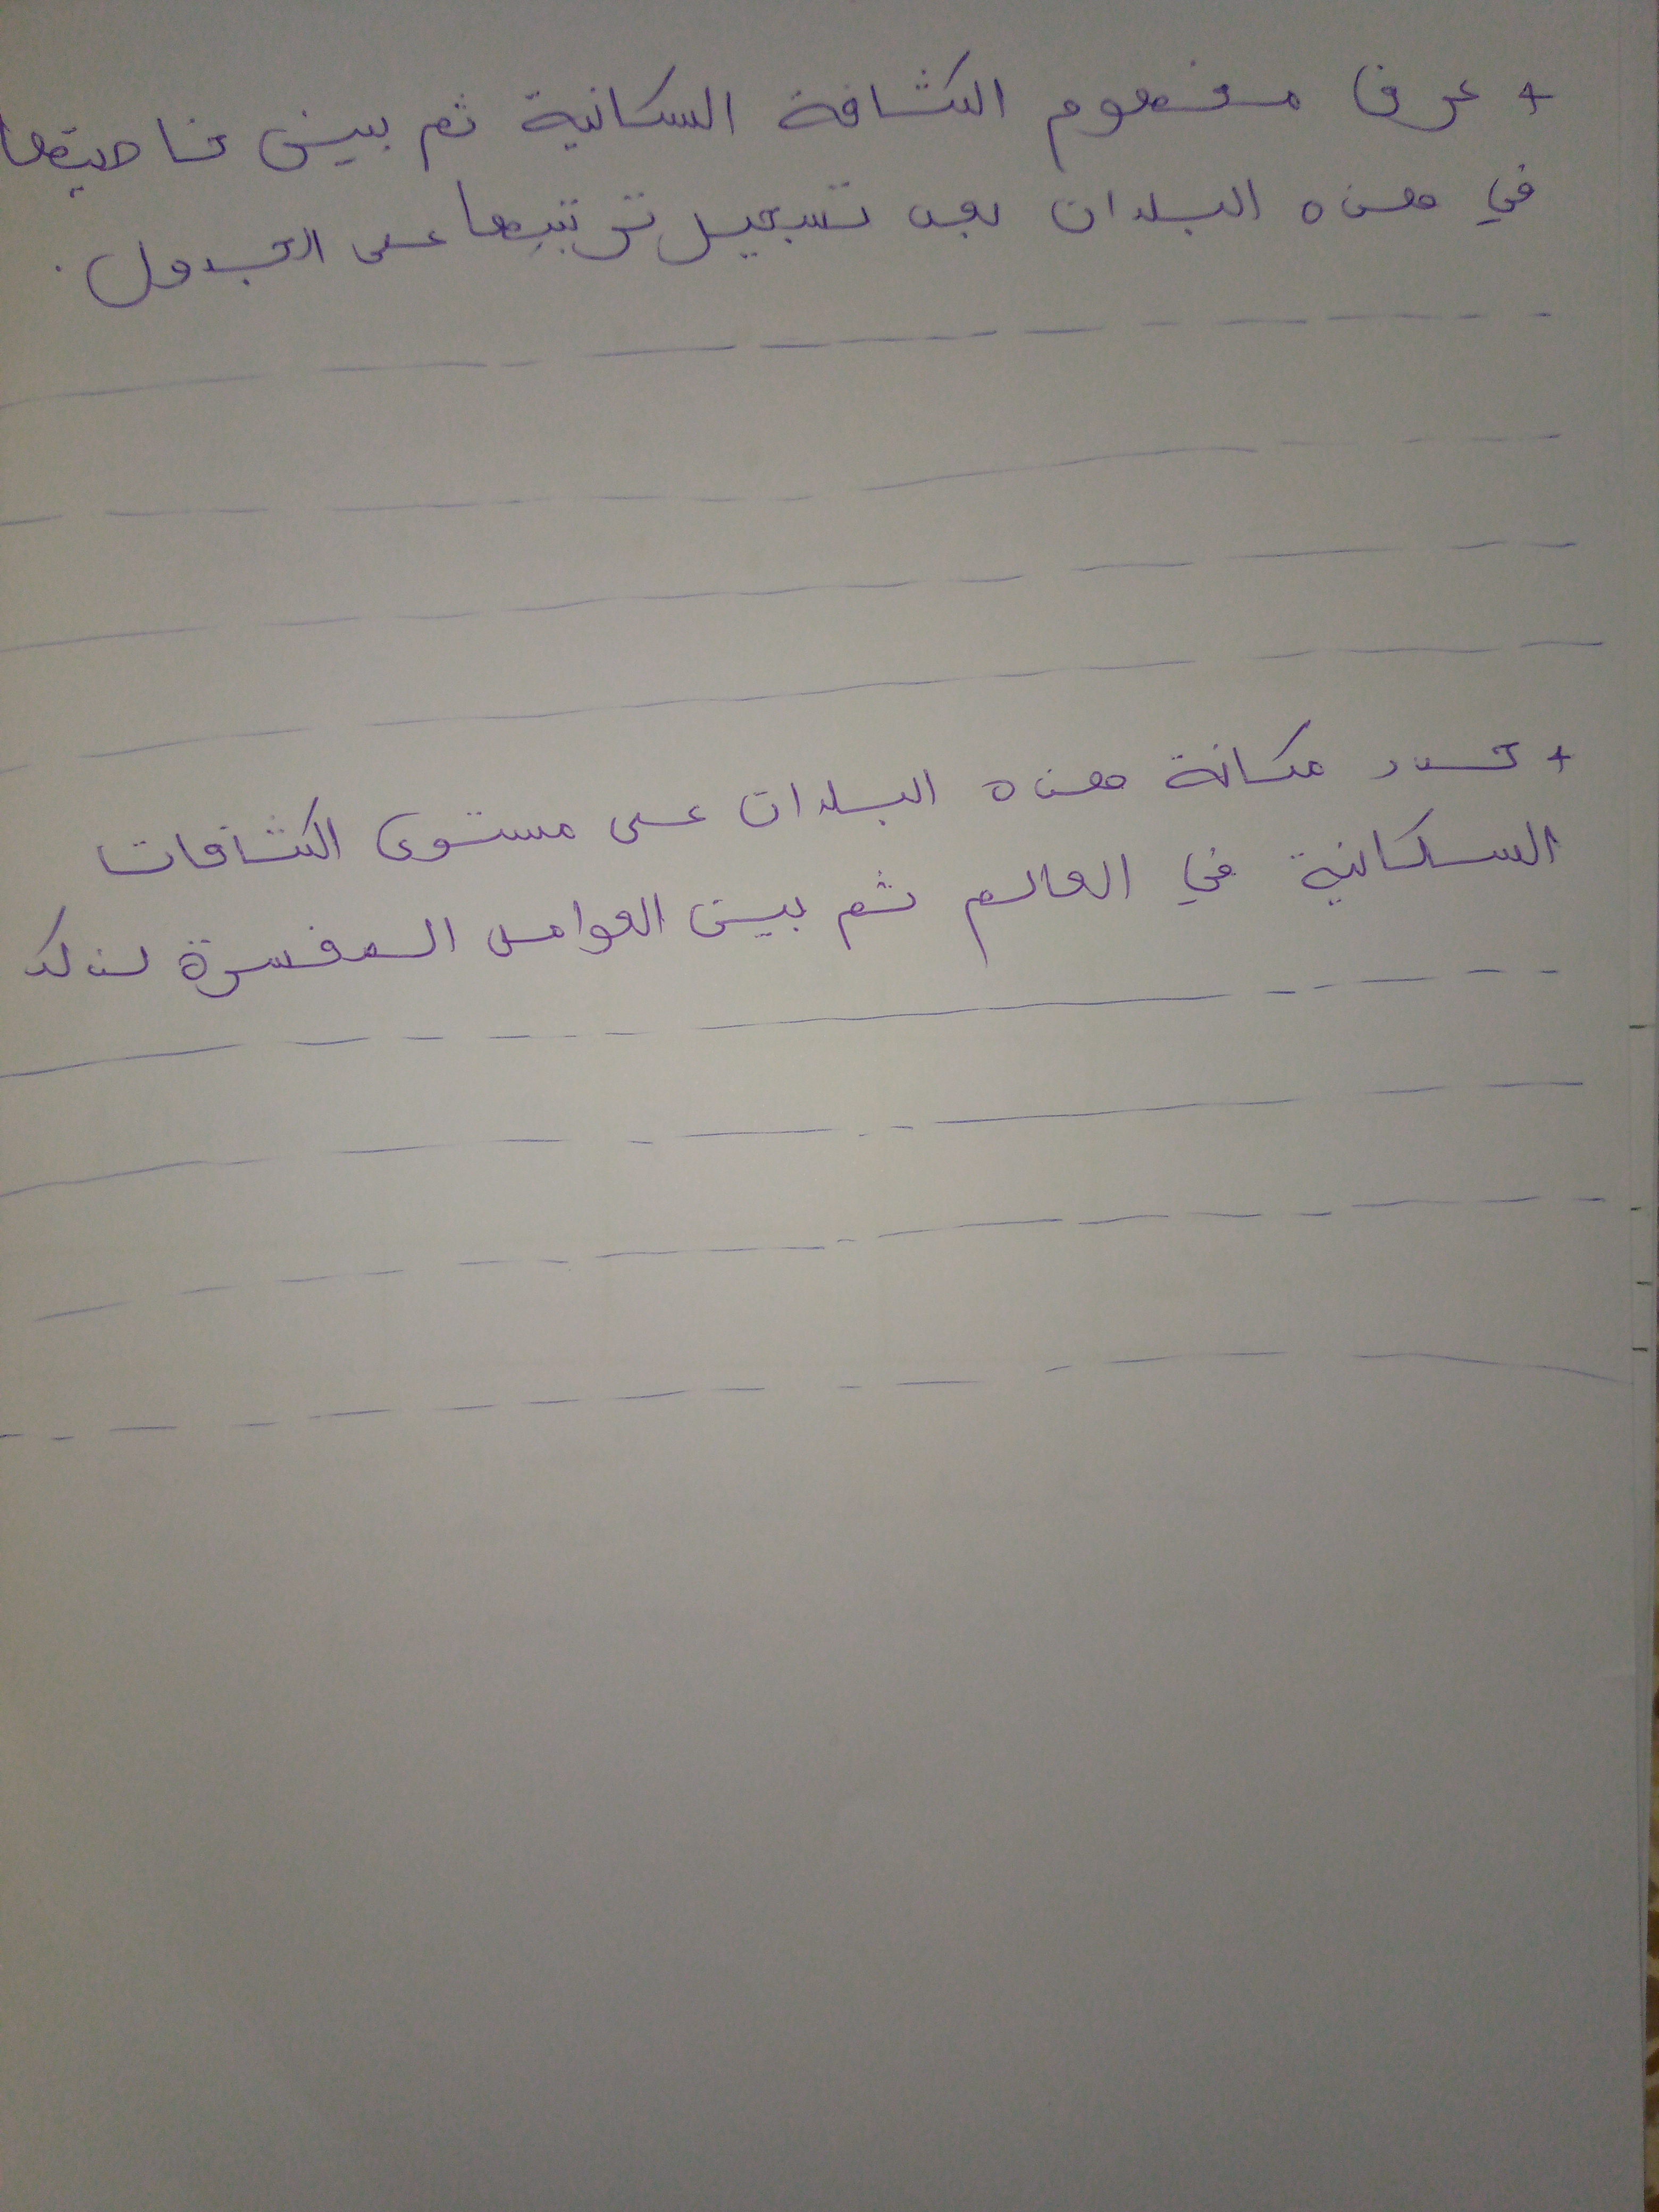 + عرف مفهوم الكثافة السكانية ثم بين خاصيتها
في هذه البلدان بعد تسجيل ترتيبها على الجدول.
+ حدد مكانة هذه البلدان على مستوى الكثافات
السكانية في العالم ثم بين العوامل المفسرة لذلك